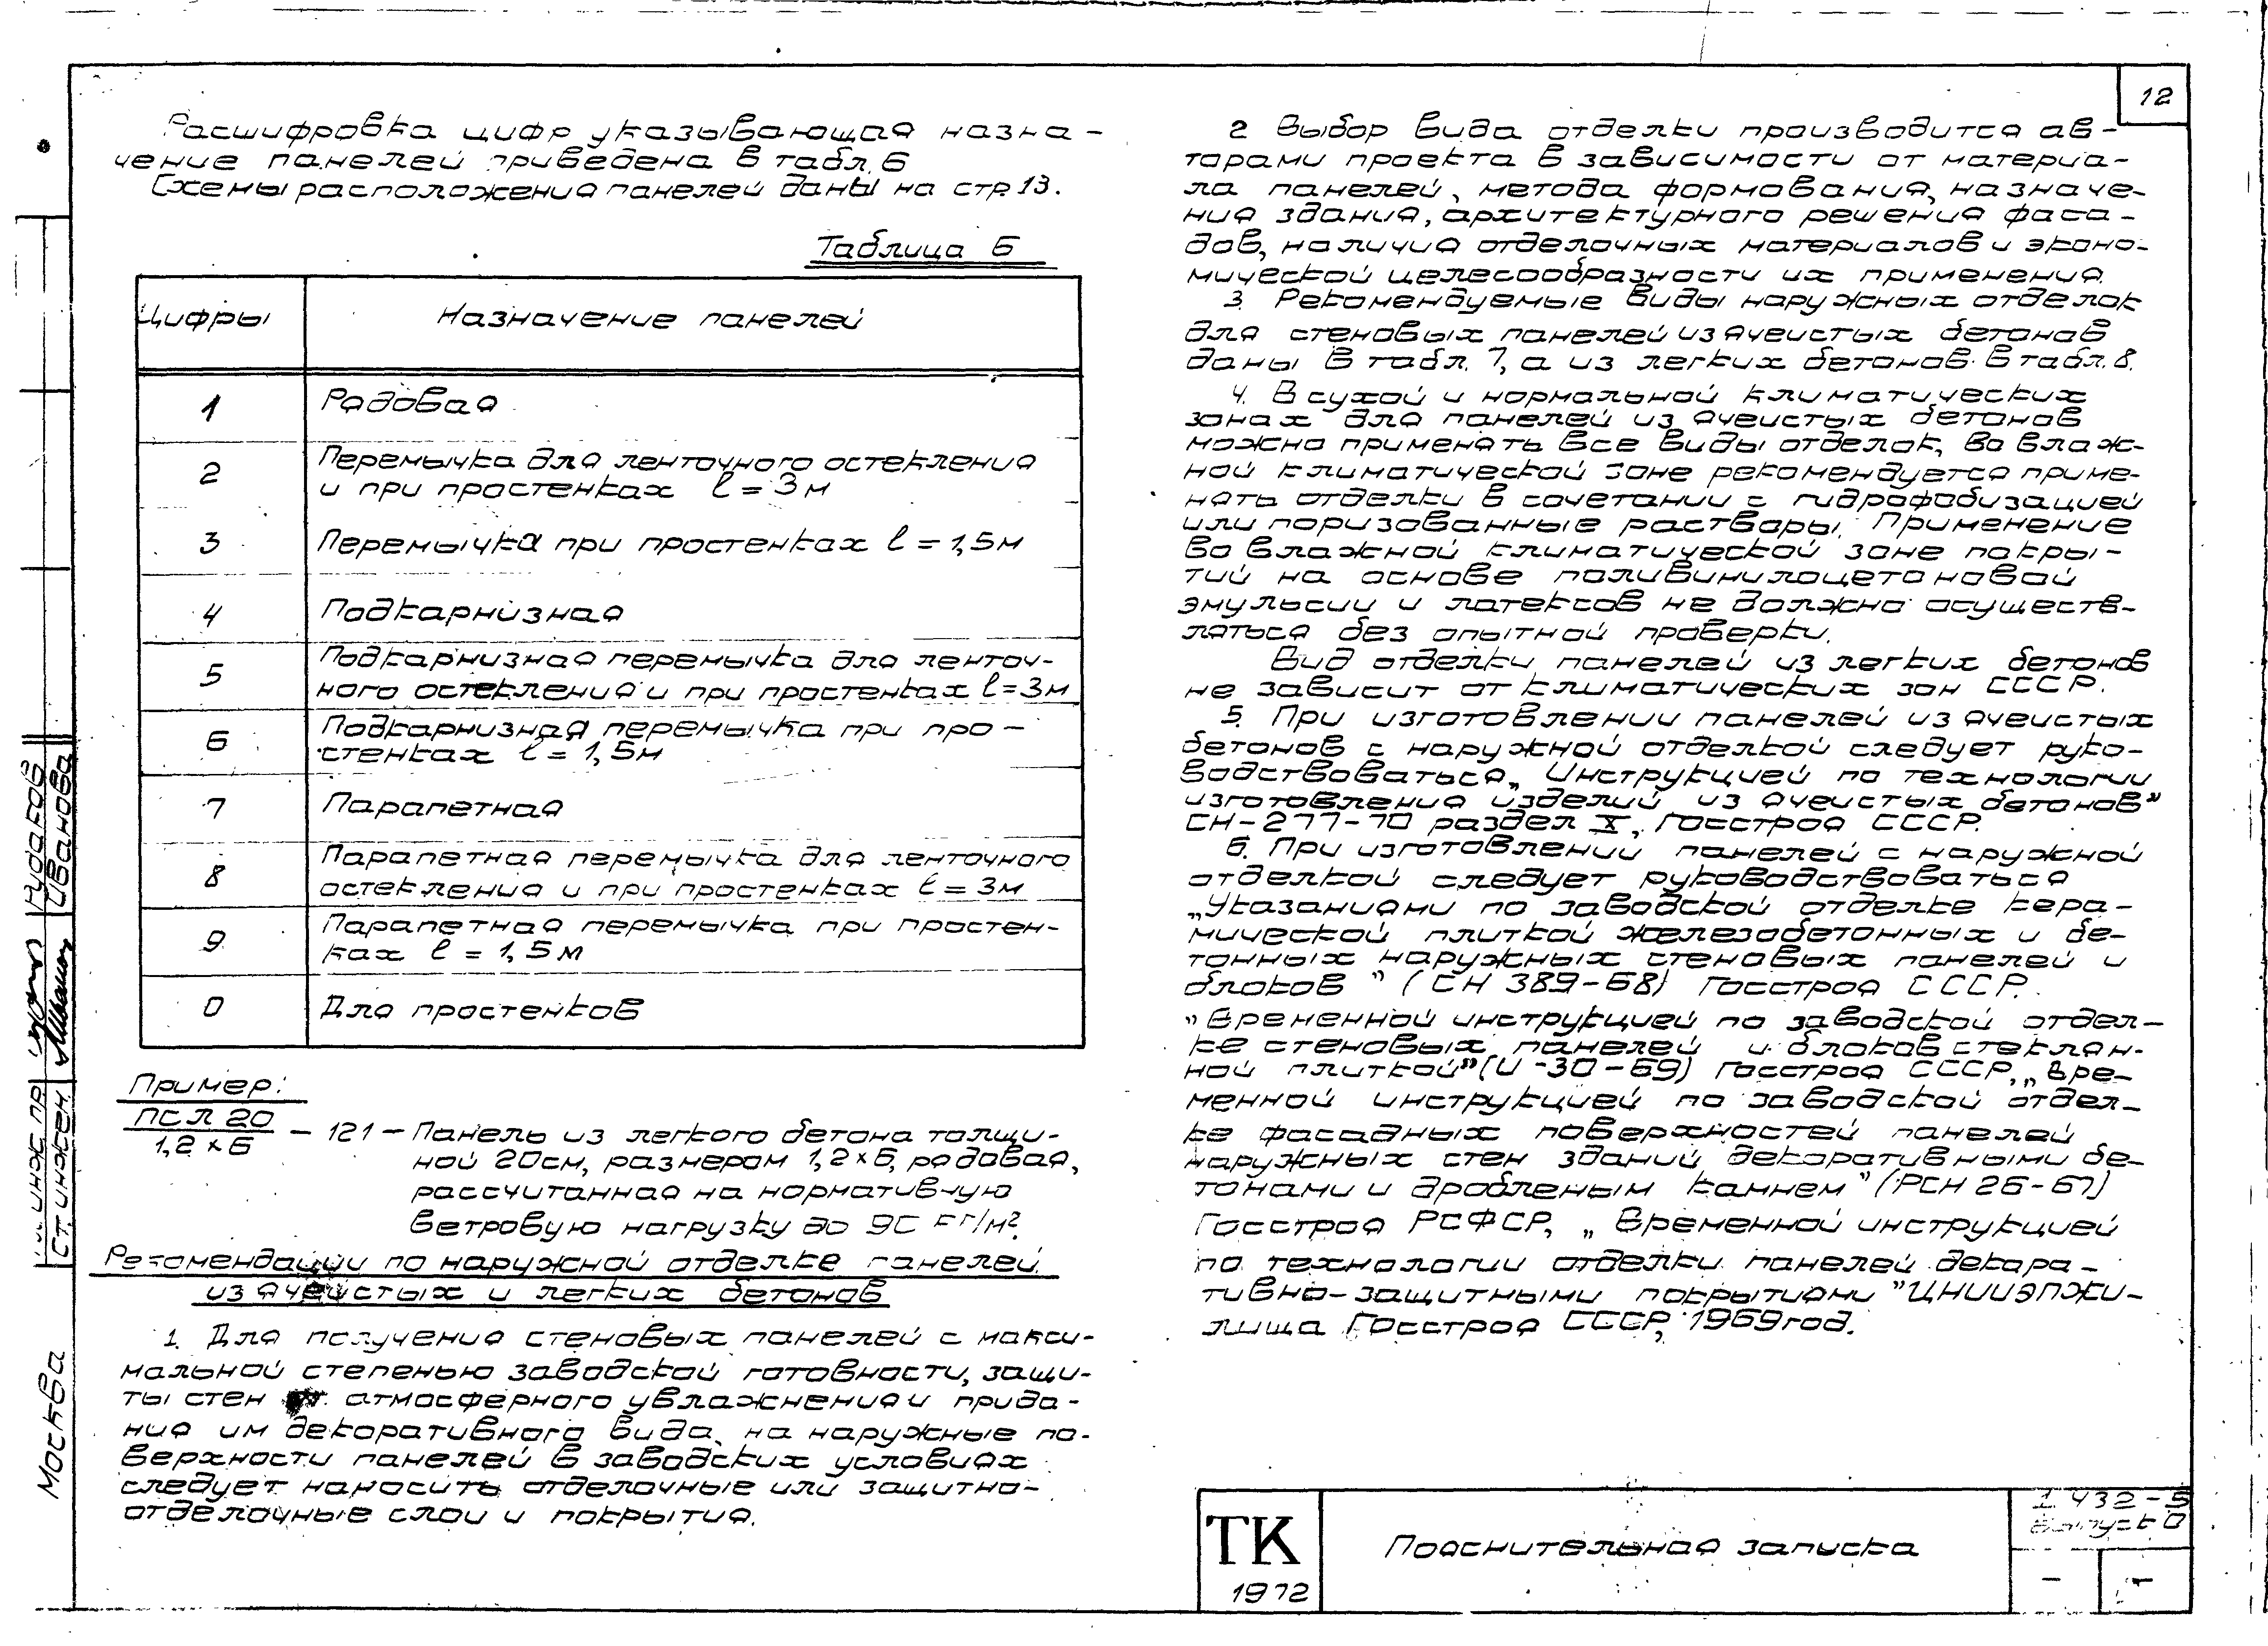 12
Расшифровка цифр указывающая назна-
чение панелей приведена в табл. 6
Схемы расположения панелей даны на стр. 13.
Таблица 6
Цифры Назначение панелей
1 Рядовая
2 Перемычка для ленточного остекления
и при простенках l = 3м
3 Перемычка при простенках l = 1,5м
4 Подкарнизная
5 Подкарнизная перемычка для ленточ-
ного остекления и при простенках l = 3м
6 Подкарнизная перемычка при про-
стенках l = 1,5м
7 Парапетная
8 Парапетная перемычка для ленточного
остекления и при простенках l = 3м
9 Парапетная перемычка при простен-
ках l = 1,5м
0 Для простенков
Пример:
ПСЛ 20
1,2 × 6
– 121 – Панель из легкого бетона толщи-
ной 20см, размером 1,2×6, рядовая,
рассчитанная на нормативную
ветровую нагрузку до 90 кг/м².
Рекомендации по наружной отделке панелей
из ячеистых и легких бетонов
1. Для получения стеновых панелей с макси-
мальной степенью заводской готовности, защи-
ты стен от атмосферного увлажнения и прида-
ния им декоративного вида, на наружные по-
верхности панелей в заводских условиях
следует наносить отделочные или защитно-
отделочные слои и покрытия.
2 Выбор вида отделки производится ав-
торами проекта в зависимости от материа-
ла панелей, метода формования, назначе-
ния здания, архитектурного решения фаса-
дов, наличия отделочных материалов и эконо-
мической целесообразности их применения.
3. Рекомендуемые виды наружных отделок
для стеновых панелей из ячеистых бетонов
даны в табл. 7, а из легких бетонов в табл. 8.
4. В сухой и нормальной климатических
зонах для панелей из ячеистых бетонов
можно применять все виды отделок, во влаж-
ной климатической зоне рекомендуется приме-
нять отделки в сочетании с гидрофобизацией
или поризованные растворы. Применение
во влажной климатической зоне покры-
тий на основе поливинилоцетоновой
эмульсии и латексов не должно осуществ-
ляться без опытной проверки.
Вид отделки панелей из легких бетонов
не зависит от климатических зон СССР.
5. При изготовлении панелей из ячеистых
бетонов с наружной отделкой следует руко-
водствоваться „Инструкцией по технологии
изготовления изделий из ячеистых бетонов"
СН-277-70 раздел X, Госстроя СССР.
6. При изготовлении панелей с наружной
отделкой следует руководствоваться
„Указаниями по заводской отделке кера-
мической плиткой железобетонных и бе-
тонных наружных стеновых панелей и
блоков" (СН 389-68) Госстроя СССР.
„Временной инструкцией по заводской отдел-
ке стеновых панелей и блоков стеклян-
ной плиткой" (И-30-69) Госстроя СССР, „Вре-
менной инструкцией по заводской отдел-
ке фасадных поверхностей панелей
наружных стен зданий декоративными бе-
тонами и дробленым камнем" (РСН 26-67)
Госстроя РСФСР, „Временной инструкцией
по технологии отделки панелей декора-
тивно-защитными покрытиями" ЦНИИЭПжи-
лища Госстроя СССР, 1969 год.
ТК
1972
Пояснительная записка
1.432-5
Выпуск 0
–
–
инж. пр. Рудаков
Ст. инжен. Иванова
Москва